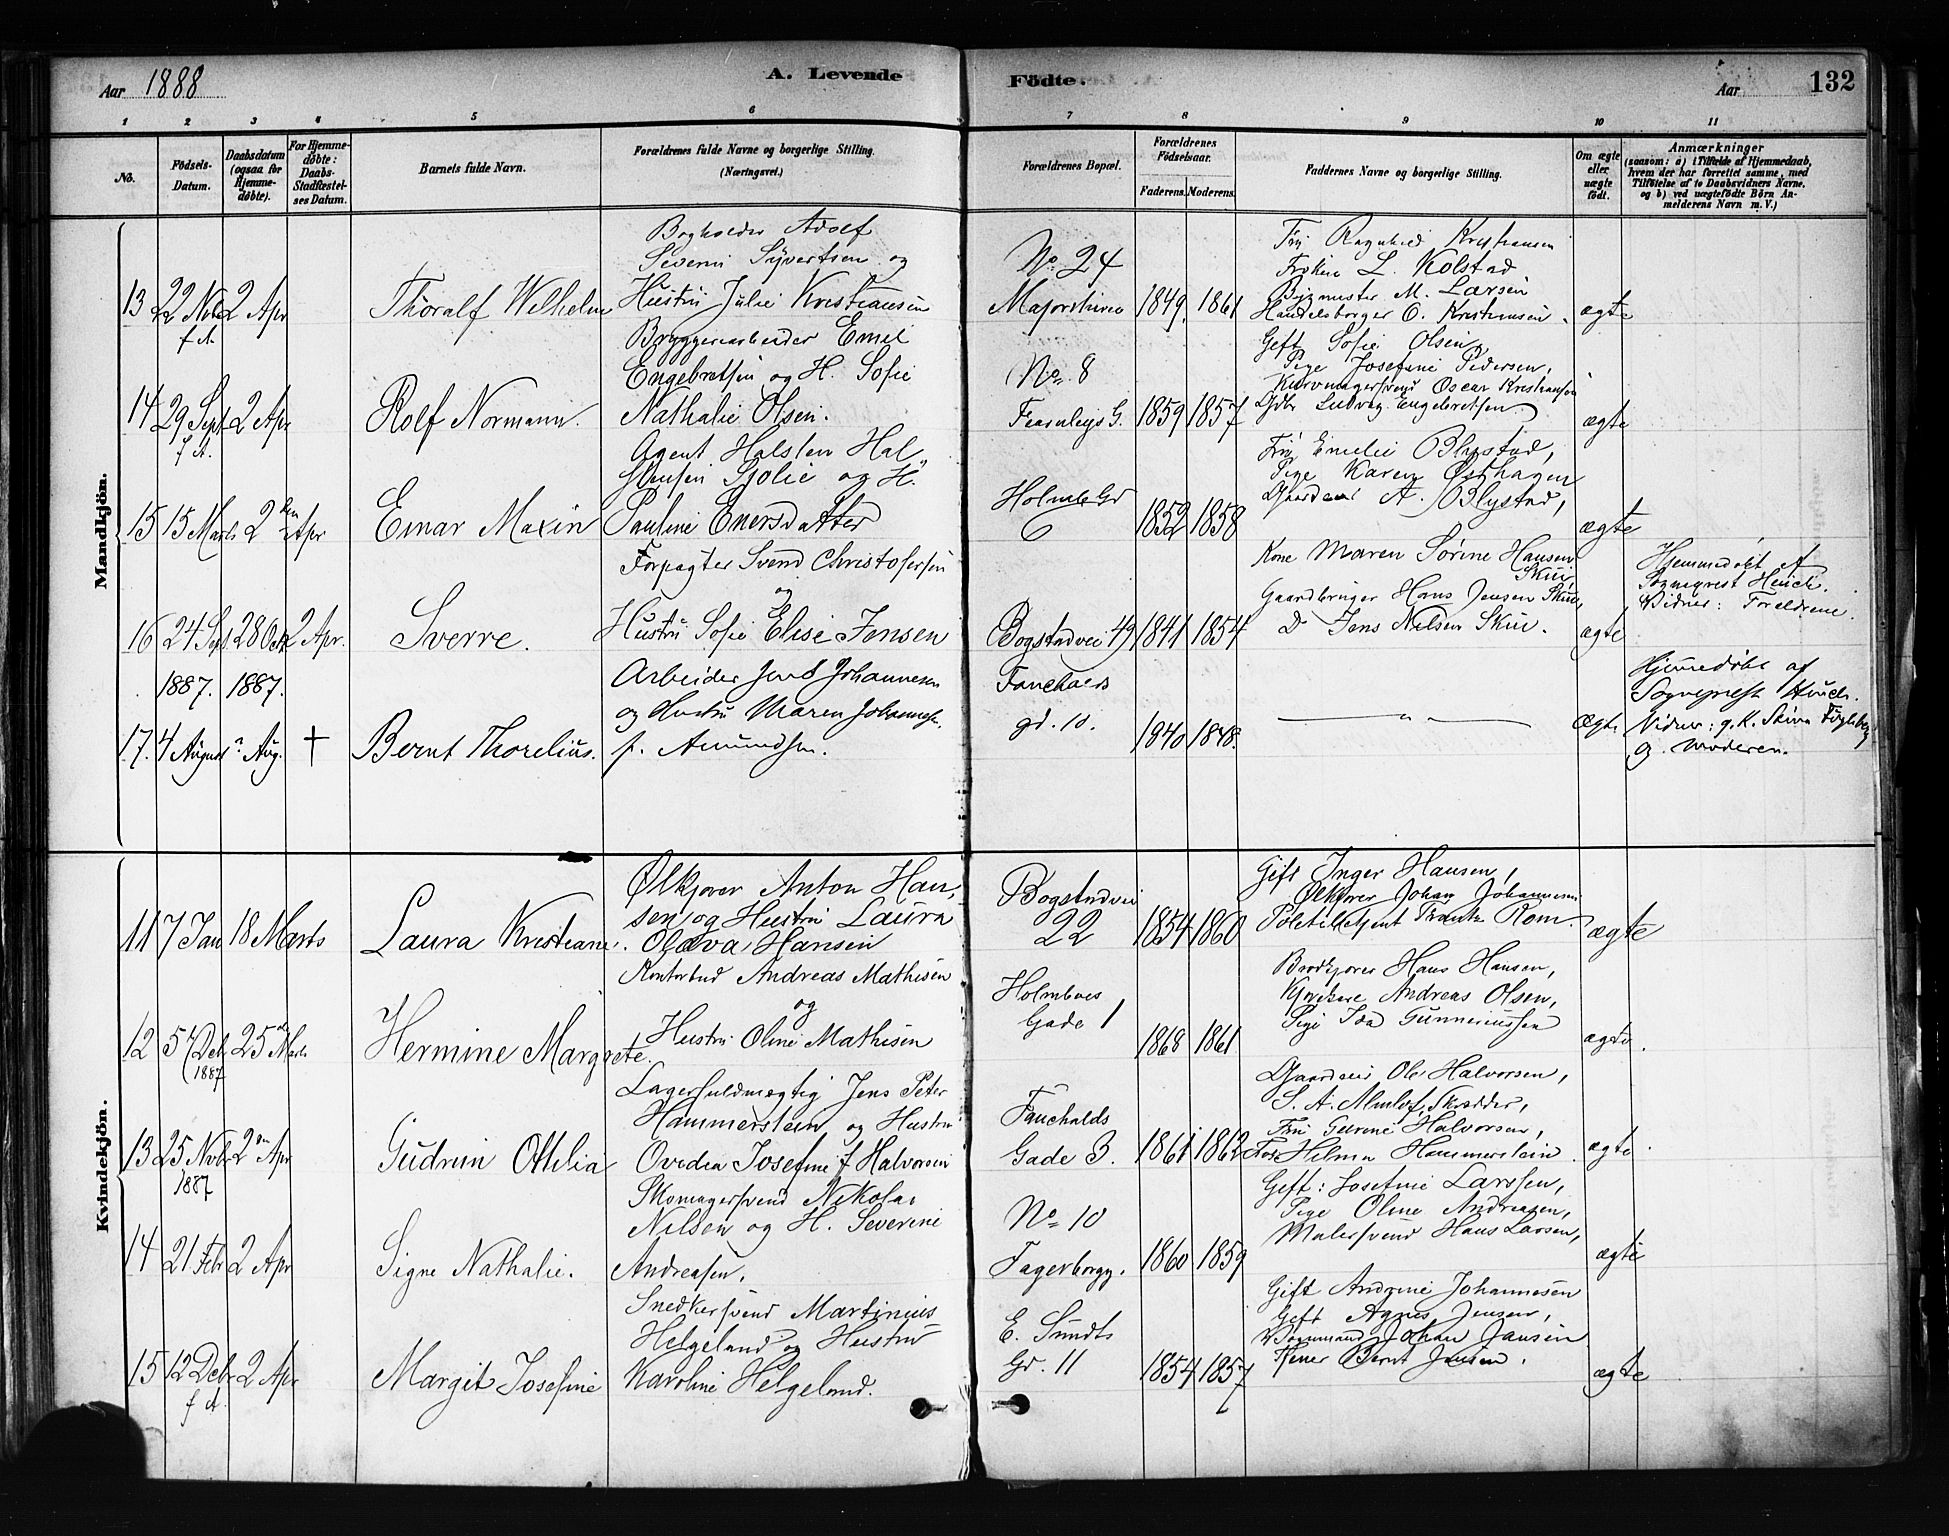 Aar 1888
A. Levende
Födte.
Aar
132
1 2 3 4 5 6 7 8 9 10 11
No.
Födsels-Datum.
Daabsdatum (ogsaa for Hjemmedöbte).
For Hjemmedöbte: Daabs-Stadfæstelses Datum.
Barnets fulde Navn.
Forældrenes fulde Navne og borgerlige Stilling.
(Næringsvei.)
Forældrenes Bopæl.
Forældrenes Födselsaar.
Faderens. Moderens.
Faddernes Navne og borgerlige Stilling.
Om ægte eller uægte födt.
Anmærkninger
(saasom: a) i Tilfælde af Hjemmedaab,
hvem der har forrettet samme, med
Tilföielse af to Daabsvidners Navne,
og b) ved uægtefödte Börn Anmelderens Navn m. V.)
Mandkjön.
13 22 Nvbr f A. 2 Apr
Thoralf Wilhelm
Bogholder Adolf
Severin Syvertsen og
Hustru Julie Kristiansen
No. 24
Majorstuvei
1849. 1861
Fru Ragnhild Kristiansen
Frøken L. Kolstad
Bygmester M. Larsen
Handelsborger O. Kristiansen.
ægte
14 29 Sept f A. 2 Apr
Rolf Normann.
Bryggeriarbeider Emil
Engebretsen og H. Sofie
Nathalie Olsen.
No. 8
Fearnleys G.
1859 1857
Gift Sofie Olsen,
Pige Josefine Pedersen,
Kurvmagersvend Oscar Kristiansen
Gdbr Ludvig Engebretsen.
ægte
15 15 Marts 2den Apr
Einar Maxin
Agent Halsten Hal
stensen Sjolie og H.
Pauline Enersdatter
Holmb. Gd
6
1852 1858
Fru Emelie Blystad,
Pige Karen Østhagen
Gaardeier A. Blystad,
ægte
16 24 Sept. 1887. 28 Octb 1887. 2 Apr.
Sverre.
Forpagter Svend Christofersen
og
Hustru Sofie Elise Jensen
Bogstadvei 49
1841 1854
Kone Maren Sørine Hansen
Skui,
Gaardbruger Hans Jensen Skui,
D Jens Nilsen Skui.
ægte
Hjemmedøbt af
Sogneprest Heuch.
Vidner: Forældrene
17. 4 August ? Aug. †
Bernt Thorelius.
Arbeider Jens Johannesen
og Hustru Maren Johannesen
f. Amundsen.
Fauchalds
gd. 10.
1840 1848.
— " —
Ægte
Hjemmedøbt af
Sogneprest Heuch.
Vidner: g. K. Stina Fugleberg
og Moderen.
Kvindekjön.
11 7 Jan 18 Marts
Laura Kristiane.
Ølkjører Anton Han
sen og Hustru Laura
Olava Hansen
Bogstadvei
22
1854 1860
Gift Inger Hansen,
Ølkjører Johan Johannesen
Politibetjent Frantz Rom.
ægte
12 5 Deb 1887 25de Marts
Hermine Margrete.
Kontorbud Andreas Mathisen
og
Hustru Oline Mathisen
Holmboes
Gade 1
1868 1861
Brødkjører Hans Hansen,
Andreas Olsen,
Pige Ida Gunneriussen
ægte.
13 25 Nvbr 1887 2den Apr
Gudrun Othilia
Lagerfuldmægtig Jens Peter
Hammerstein og Hustru
Ovedia Josefine f Halvorsen
Fauchalds
Gade 3.
1861 1862
Gaardeier Ole Halvorsen,
S. A. Almlof, Skrædder,
Fru Gurine Halvorsen,
Frk Hilma Hammerstein.
ægte.
14 21 Febr 2 Apr
Signe Nathalie.
Skomagersvend Nikolai
Nilsen og H. Severine
Andreasen.
No. 10
Fagerborgg.
1860 1859
Gift: Josefine Larssen,
Pige Oline Andreasen,
Malersvend Hans Larsen,
ægte
15 12 Debr f A. 2 Apr
Margit Josefine
Snedkersvend Martinius
Helgeland og Hustru
Karoline Helgeland.
E. Sundts
Gd. 11
1854 1857
Gift Andrine Johannesen
Gift Agnes Jensen,
Vognmand Johan Jansen
Bernt Jensen.
ægte